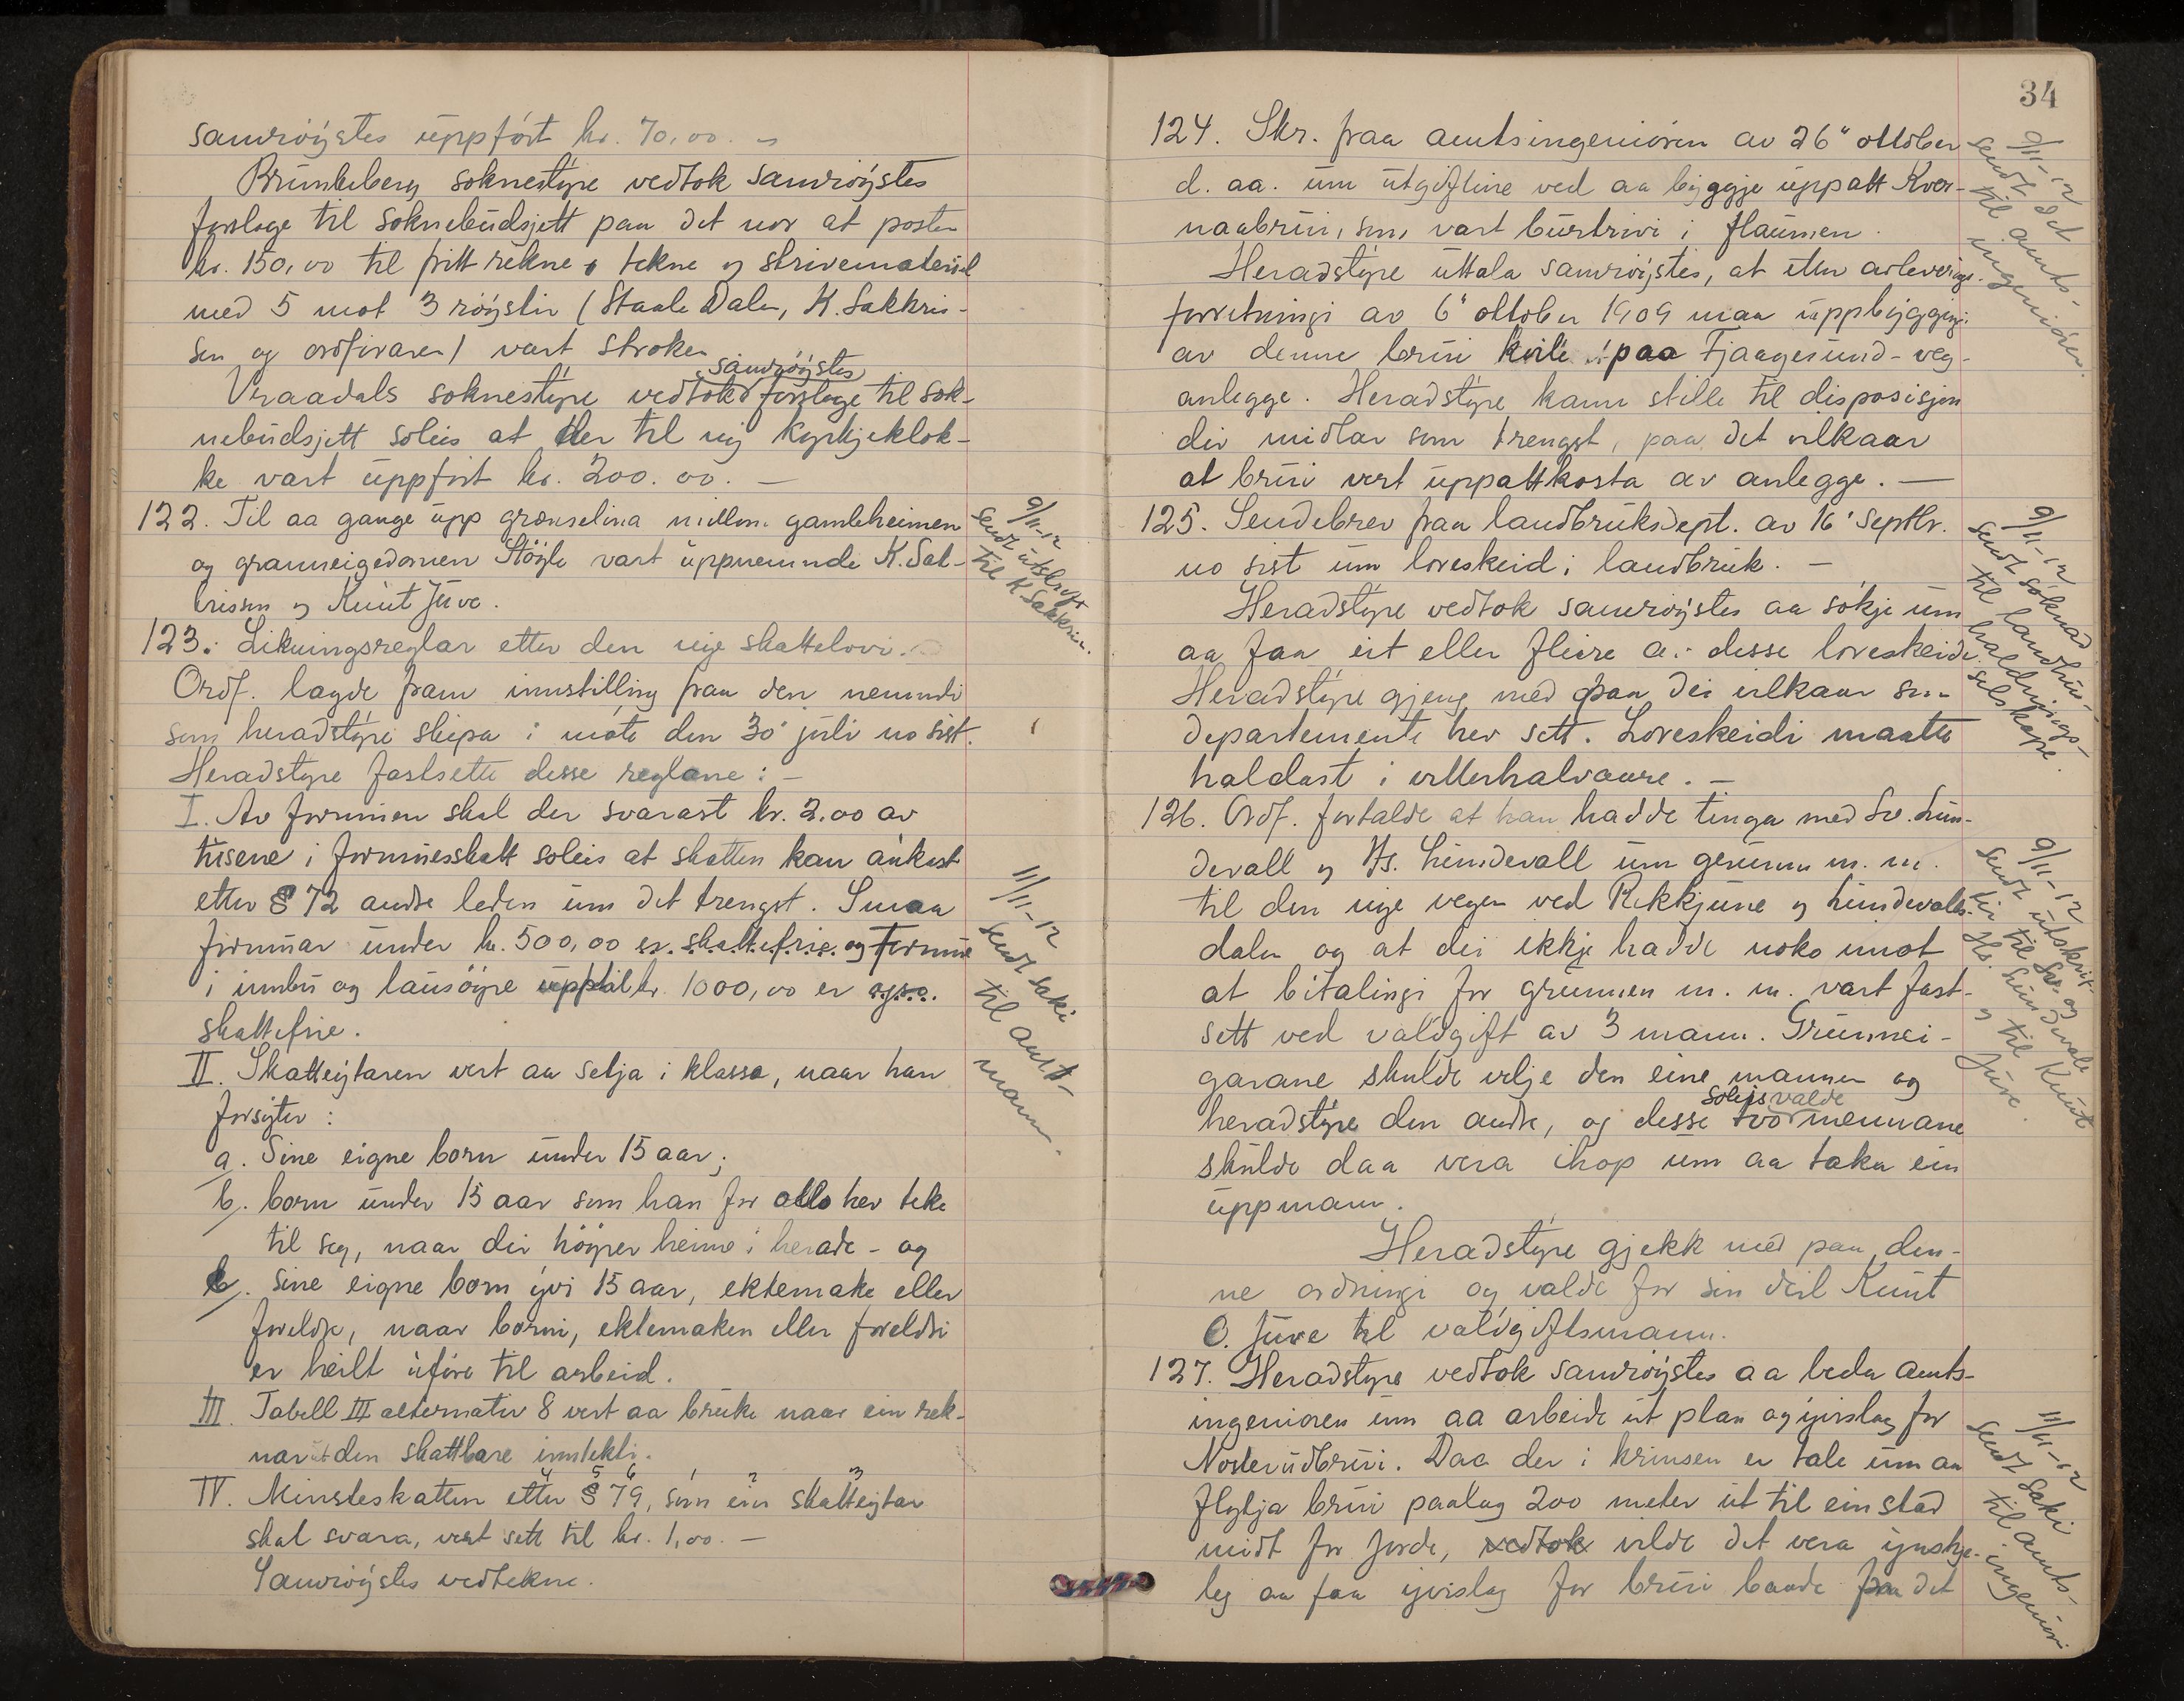 samröystes uppfört kr. 70,00. —
Brunkeberg soknestyre vedtok samröystes
forslage til soknebudsjett paa det nær at posten
kr. 150,00 til fritt rekne, tekne og skrivematerial
med 5 mot 3 röyster (Staale Dalen, K. Sakkris-
sen og ordföraren) vart stroken
samröystes
Vraadals soknestyre vedtok forslage til sok-
nebudsjett soleis at der til ny kyrkjeklok-
ke vart uppfört kr. 200.00. —
122. Til aa gange upp grenselina millom gamleheimen
og granneigedomen Stöyle vart uppnemnde K. Sak-
krissen og Knut Juve.
9/11-12
sendt utskrift
til K. Sakkrisn.
123. Likningsreglar etter den nye skattelovi.
Ordf. lagde fram innstilling fraa den nemndi
som heradstyre skipa i möte den 30' juli no sist.
Heradstyre fastsette desse reglane: —
I. Av formuen skal der svarast kr. 2.00 av
tusene i formuesskatt soleis at skatten kan aukast
etter § 72 andre leden um det trengst. Smaa
formuar under kr. 500,00 er skattefrie og formue
i innbu og lausöyre upptil kr. 1000,00 er ogso
skattefrie.
11/11-12
sendt saki
til amt-
mann.
II. Skatteytaren vert aa setja i klasse, naar han
forsyter:
a. Sine eigne born under 15 aar;
b. born under 15 aar som han for allo hev teke
til seg, naar dei höyrer heime i herade - og
c. sine eigne born yvi 15 aar, ektemake eller
foreldre, naar borni, ektemaken eller foreldri
er heilt uföre til arbeid.
III. Tabell III alternativ 8 vert aa bruke naar ein rek-
nar ut den skattbare inntekti.
4 5 6 1 2 3
IV. Minsteskatten etter § 79, som ein skatteytar
skal svara, vert sett til kr. 1,00. —
Samröystes vedtekne.
34
124. Skr. fraa amtsingeniören av 26" oktober
d. aa. um utgiftine ved aa byggje uppatt Kver-
naabrui, som vart burtrivi i flaumen.
Heradstyre uttala samröystes, at etter avleverings-
forretningi av 6" oktober 1909 maa uppbyggingi
av denne brui kvile paa Fjaagesund-veg-
anlegge. Heradstyre kann stille til disposisjon
dei midlar som trengst, paa det vilkaar
at brui vert uppattkosta av anlegge. —
9/11-12
sendt det
til amts-
ingeniören.
125. Sendebrev fraa landbruksdept. av 16' septbr.
no sist um læreskeid i landbruk. —
Heradstyre vedtok samröystes aa sökje um
aa faa eit eller fleire av desse læreskeidi.
Heradstyre gjeng med paa dei vilkaar som
departemente hev sett. Læreskeidi maatte
haldast i vetterhalvaare. —
9/11-12
sendt söknad
til landhus-
haldnings-
selskape.
126. Ordf. fortalde at han hadde tinga med Sv. Lun-
devall og Hs. Lundevall um grunn m. m.
til den nye vegen ved Rekkjune og Lundevalls-
dalen og at dei ikkje hadde noko imot
at bitalingi for grunnen m. m. vart fast-
sett ved valdgift av 3 mann. Grunnei-
garane skulde velje den eine mannen og
soleis valde
heradstyre den andre, og desse tvo mennane
skulde daa vera ihop um aa taka ein
uppmann.
Heradstyre gjekk med paa den-
ne ordningi og valde for sin deil Knut
O. Juve til valdgiftsmann.
9/11-12
sendt utskrift
til Sv. og
Hs. Lundevall
og til Knut
Juve.
127. Heradstyre vedtok samröystes aa beda amts-
ingeniören um aa arbeide ut plan og yvislag for
Nosterudbrui. Daa der i krinsen er tale um aa
flytja brui paalag 200 meter ut til ein stad
midt for Jorde, vedtok vilde det vera ynskje-
leg aa faa yvislag for brui baade paa det
11/11-12
sendt saki
til amts-
ingeniöri